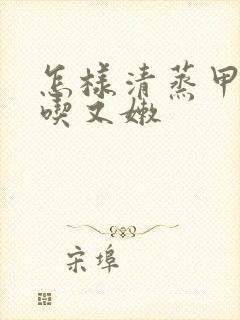 怎样清蒸甲
喫又嫩
宋埠